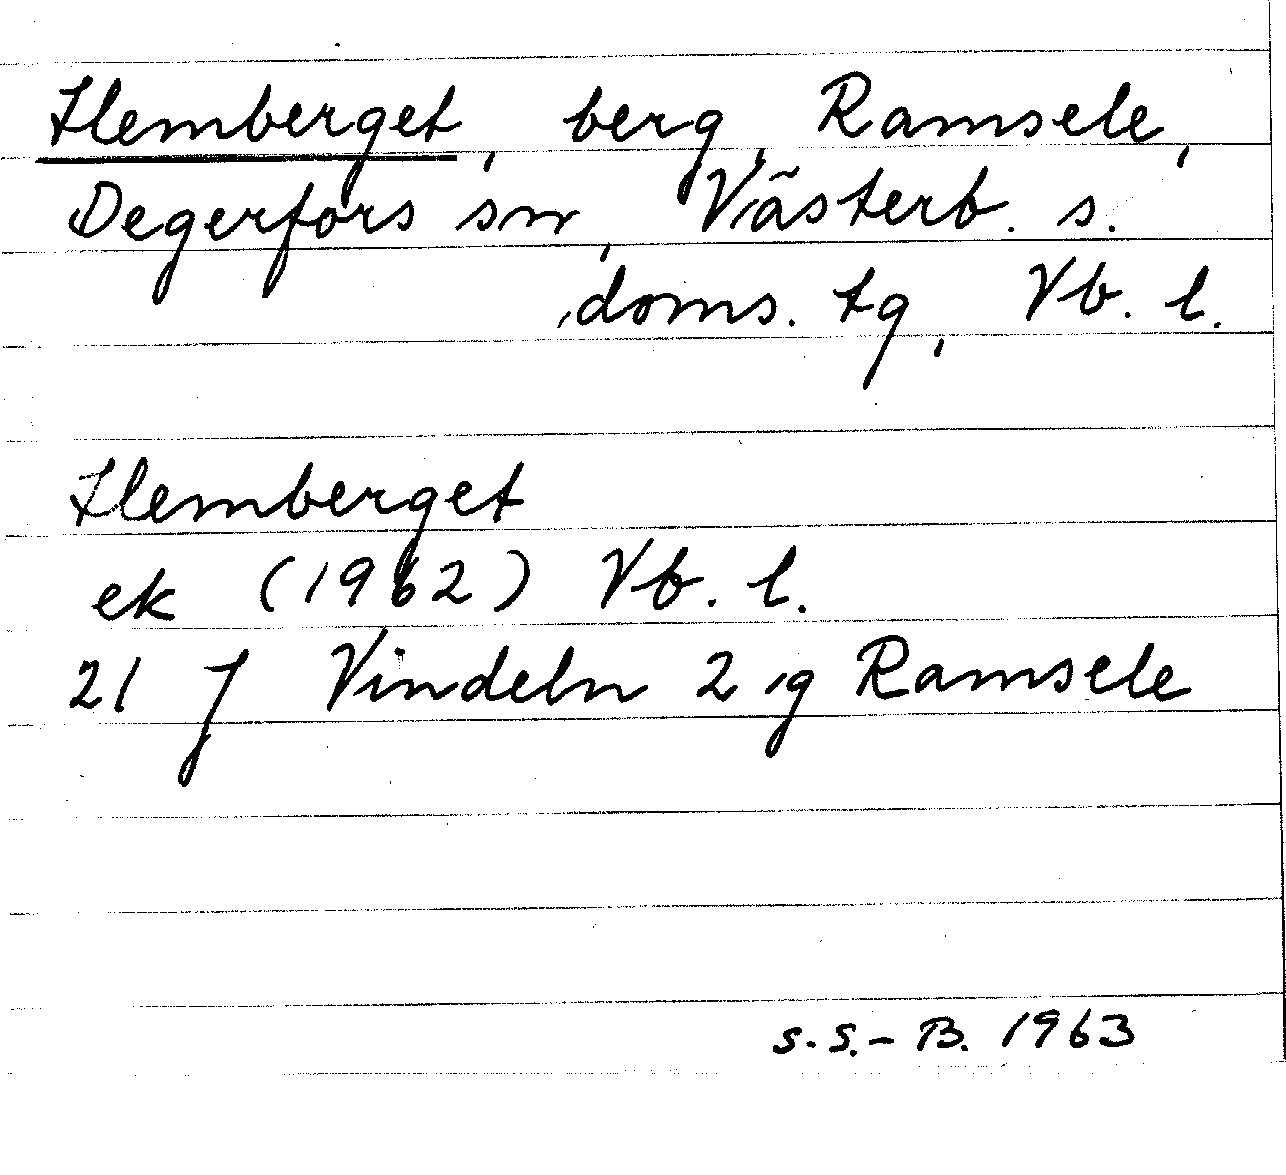 Hemberget, berg, Ramsele,
Degerfors sn, Västerb. s.
doms. tg, Vb. l.
Hemberget
ek (1962) Vb. l.
21 J Vindeln 2 g Ramsele
S. S.-B. 1963